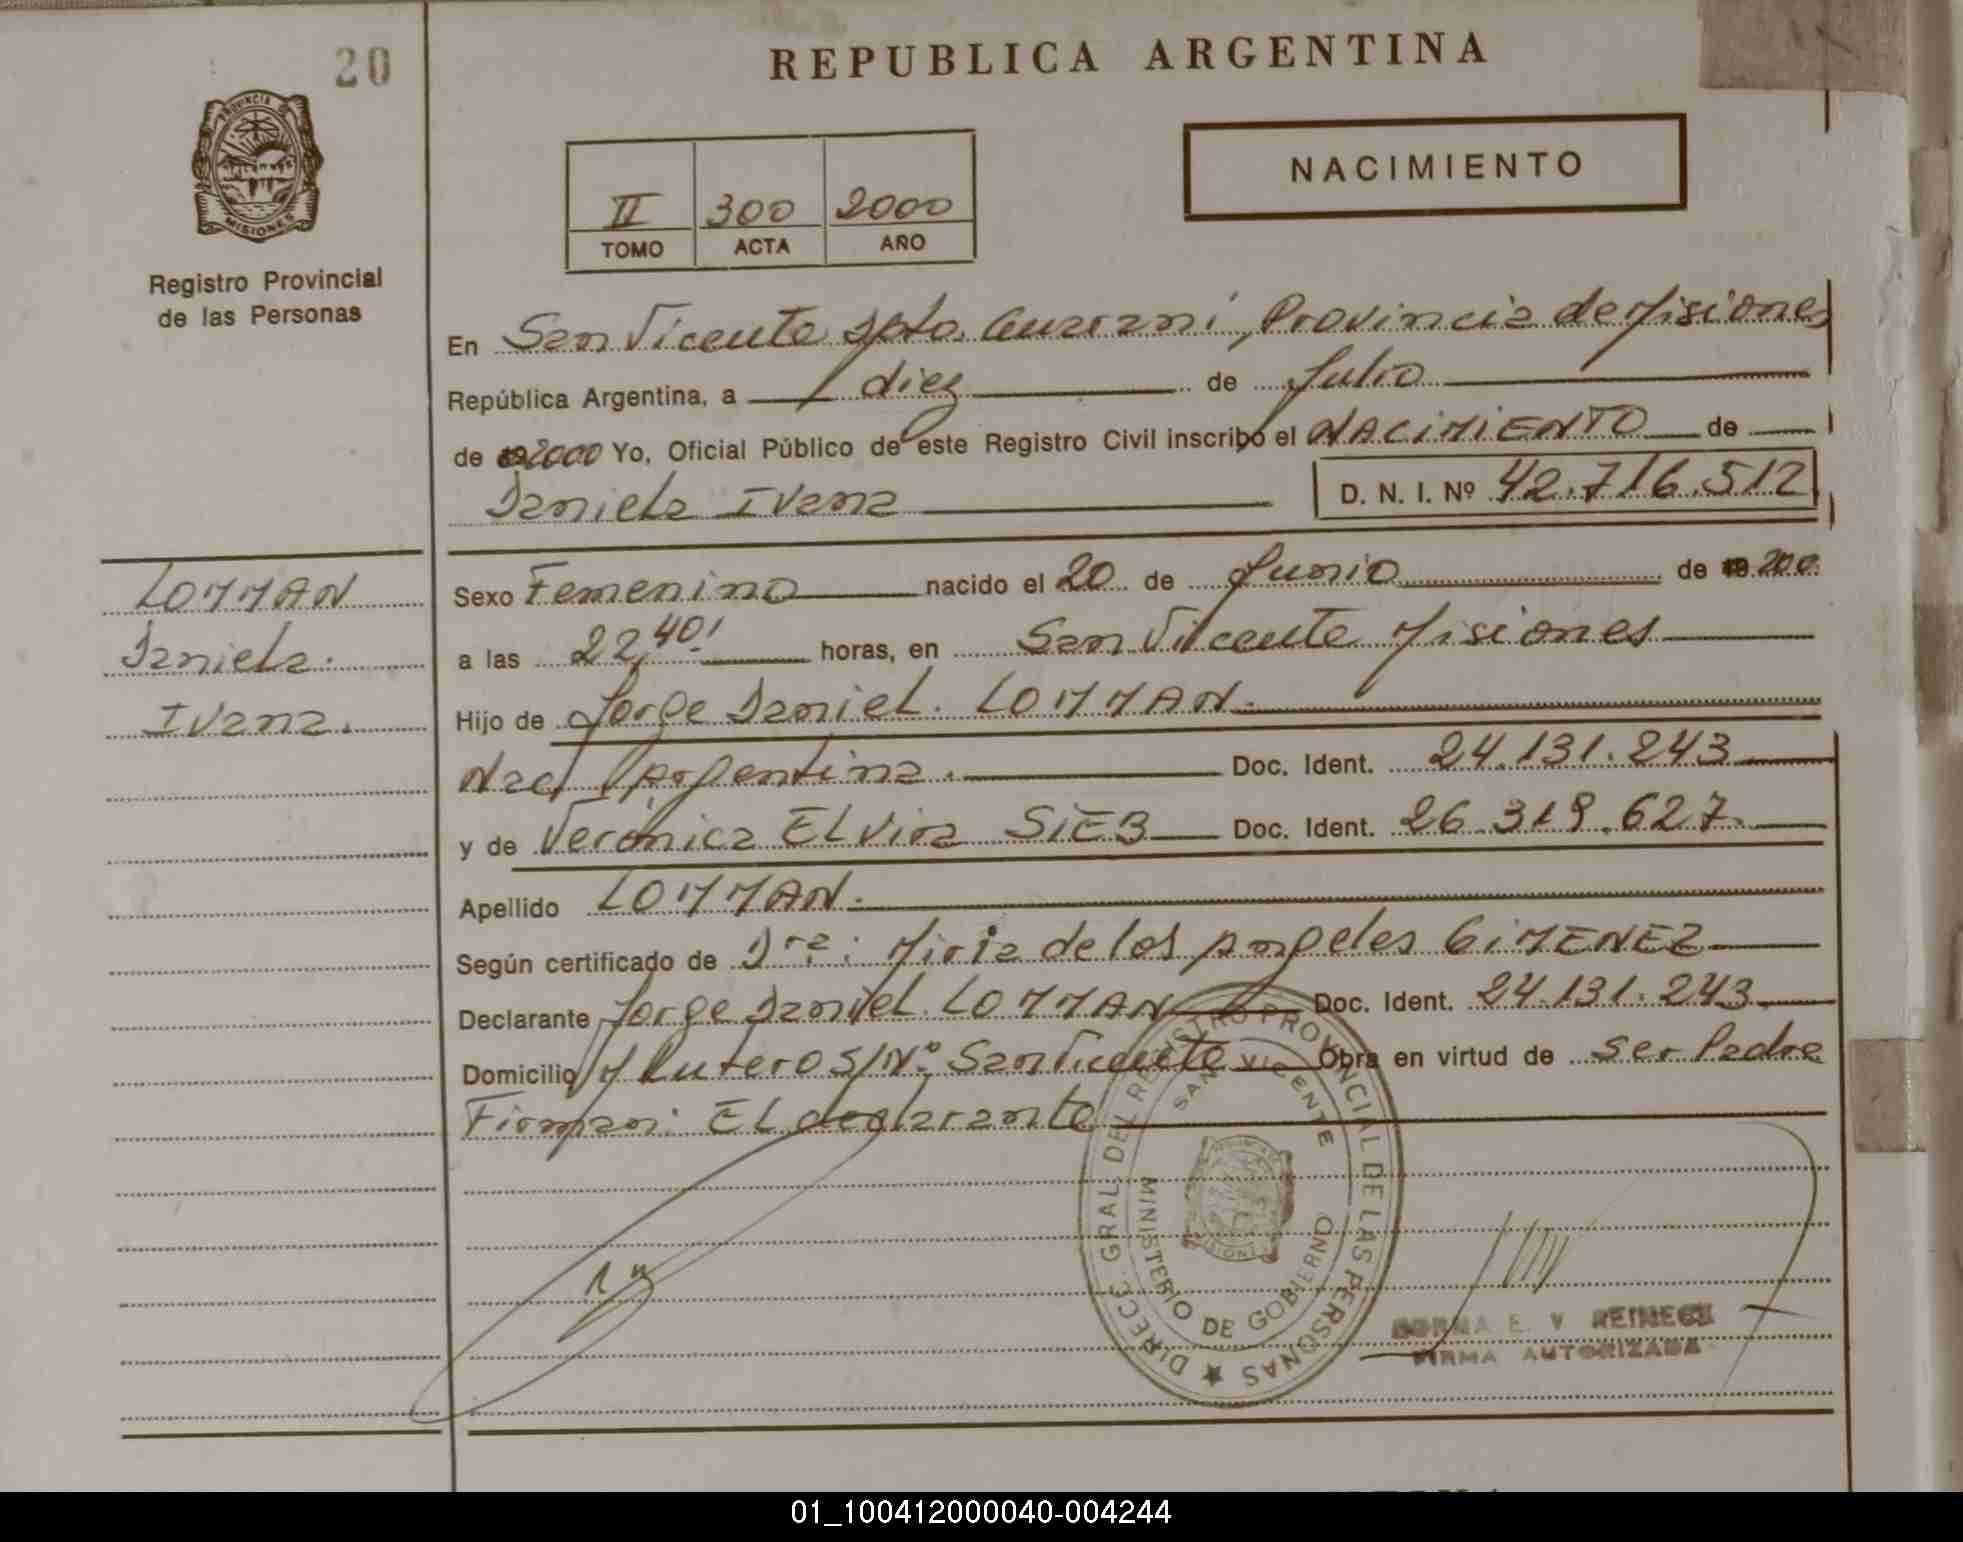 20
REPUBLICA ARGENTINA
PROVINCIA DE
MISIONES
Registro Provincial
de las Personas
II 300 2000
TOMO ACTA AÑO
NACIMIENTO
En San Vicente Dpto. Guarani, Provincia de Misiones
República Argentina, a diez de Julio
de 2000 Yo, Oficial Público de este Registro Civil inscribo el NACIMIENTO de
Daniela Ivana D. N. I. Nº 42.716.512
LOMMAN
Daniela.
Ivana.
Sexo Femenino nacido el 20 de Junio de 200
a las 22,40' horas, en San Vicente Misiones
Hijo de Jorge Daniel. LOMMAN.
Nac. Argentina. Doc. Ident. 24.131.243
y de Verónica ELvira SIEB Doc. Ident. 26.319.627.
Apellido LOMMAN.
Según certificado de Dra: Miria de los Angeles GIMENEZ
Declarante Jorge Daniel. LOMMAN Doc. Ident. 24.131.243
Domicilio S/Nº San Vicente Obra en virtud de Ser Padre
Firman: EL declarante
DIRECC. GRAL. DEL REGISTRO PROVINCIAL DE LAS PERSONAS
SAN VICENTE
MINISTERIO DE GOBIERNO
MISIONES
NORMA E. V REINECK
FIRMA AUTORIZADA
01_100412000040-004244